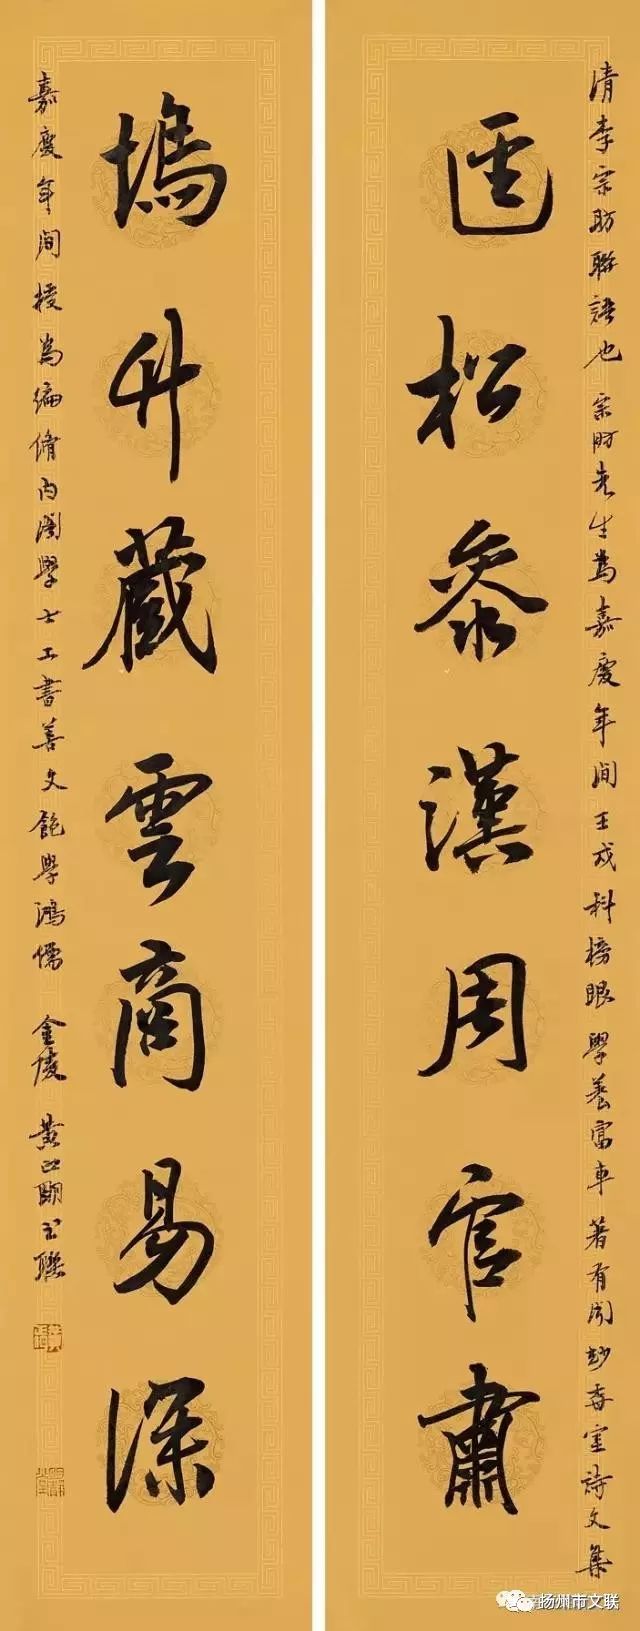 清李宗昉聯語也 宗昉先生為嘉慶年間壬戌科榜眼學養富車著有聞妙香室詩文集
逕松參漢周官肅
塢竹藏雲商易深
嘉慶年間授為編脩內閣學士工書善文飽學鴻儒 金陵黃
扬州市文联